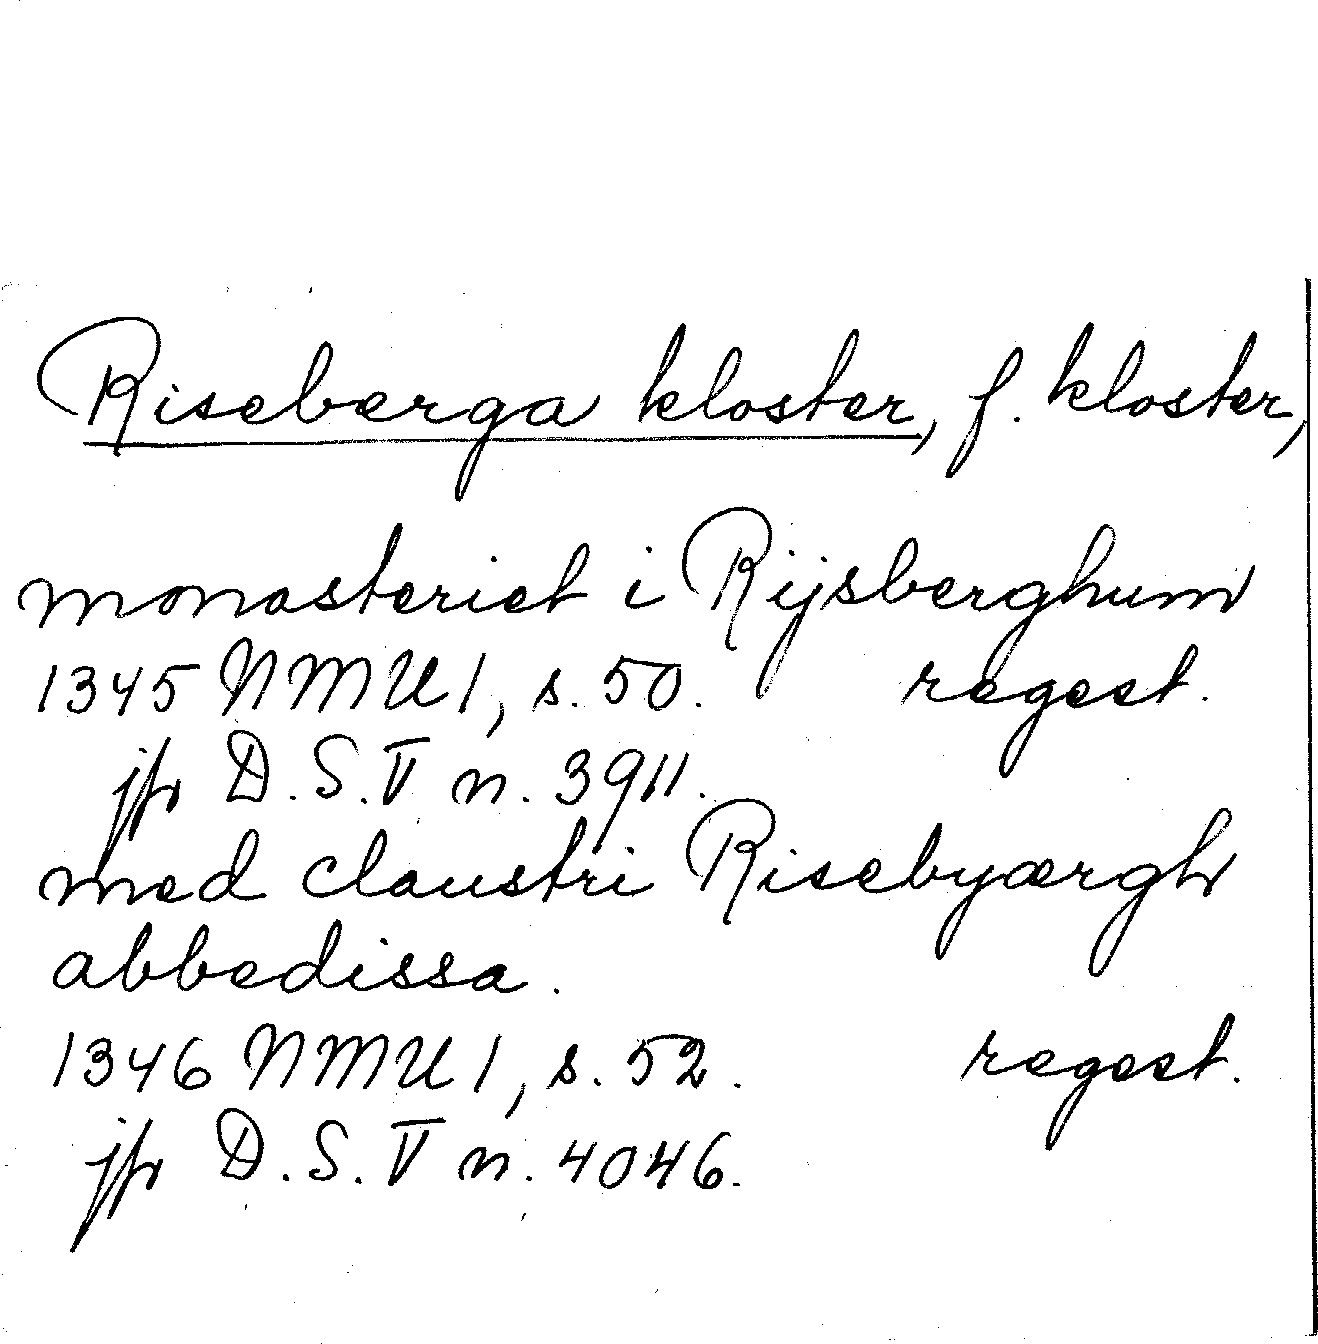 Riseberga kloster, f. kloster,
monasteriet i Rijsberghum
1345 NMU 1, s. 50. regest.
jfr D. S. V n. 3911.
med claustri Risebyærgh
abbedissa.
1346 NMU 1, s. 52. regest.
jfr D. S. V n. 4046.